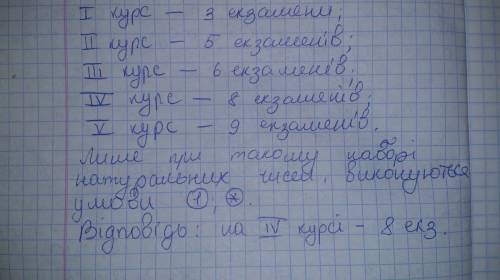 I курс — 3 екзамени;
II курс — 5 екзаменів;
III курс — 6 екзаменів;
IV курс — 8 екзаменів;
V курс — 9 екзаменів.
Лише при такому наборі
натуральних чисел, виконуються
умови ①, ⊛.
Відповідь: на IV курсі - 8 екз.